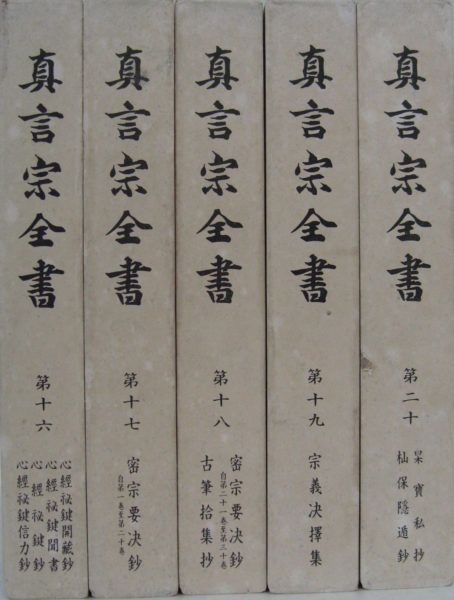 真言宗全書
第十六
心經祕鍵開藏鈔
心經祕鍵聞書
心經祕鍵鈔
心經祕鍵信力鈔
真言宗全書
第十七
密宗要决鈔
自第一卷至第二十卷
真言宗全書
第十八
密宗要决鈔
自第二十一卷至第三十卷
古筆拾集抄
真言宗全書
第十九
宗義决擇集
真言宗全書
第二十
杲寳私抄
杣保隠遁鈔